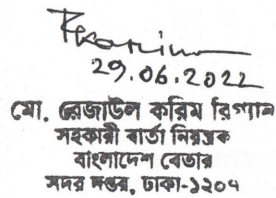 Rkarim
29.06.2022
মো. রেজাউল করিম রিগ্যান
সহকারী বার্তা নিয়ন্ত্রক
বাংলাদেশ বেতার
সদর দপ্তর, ঢাকা-১২০৭